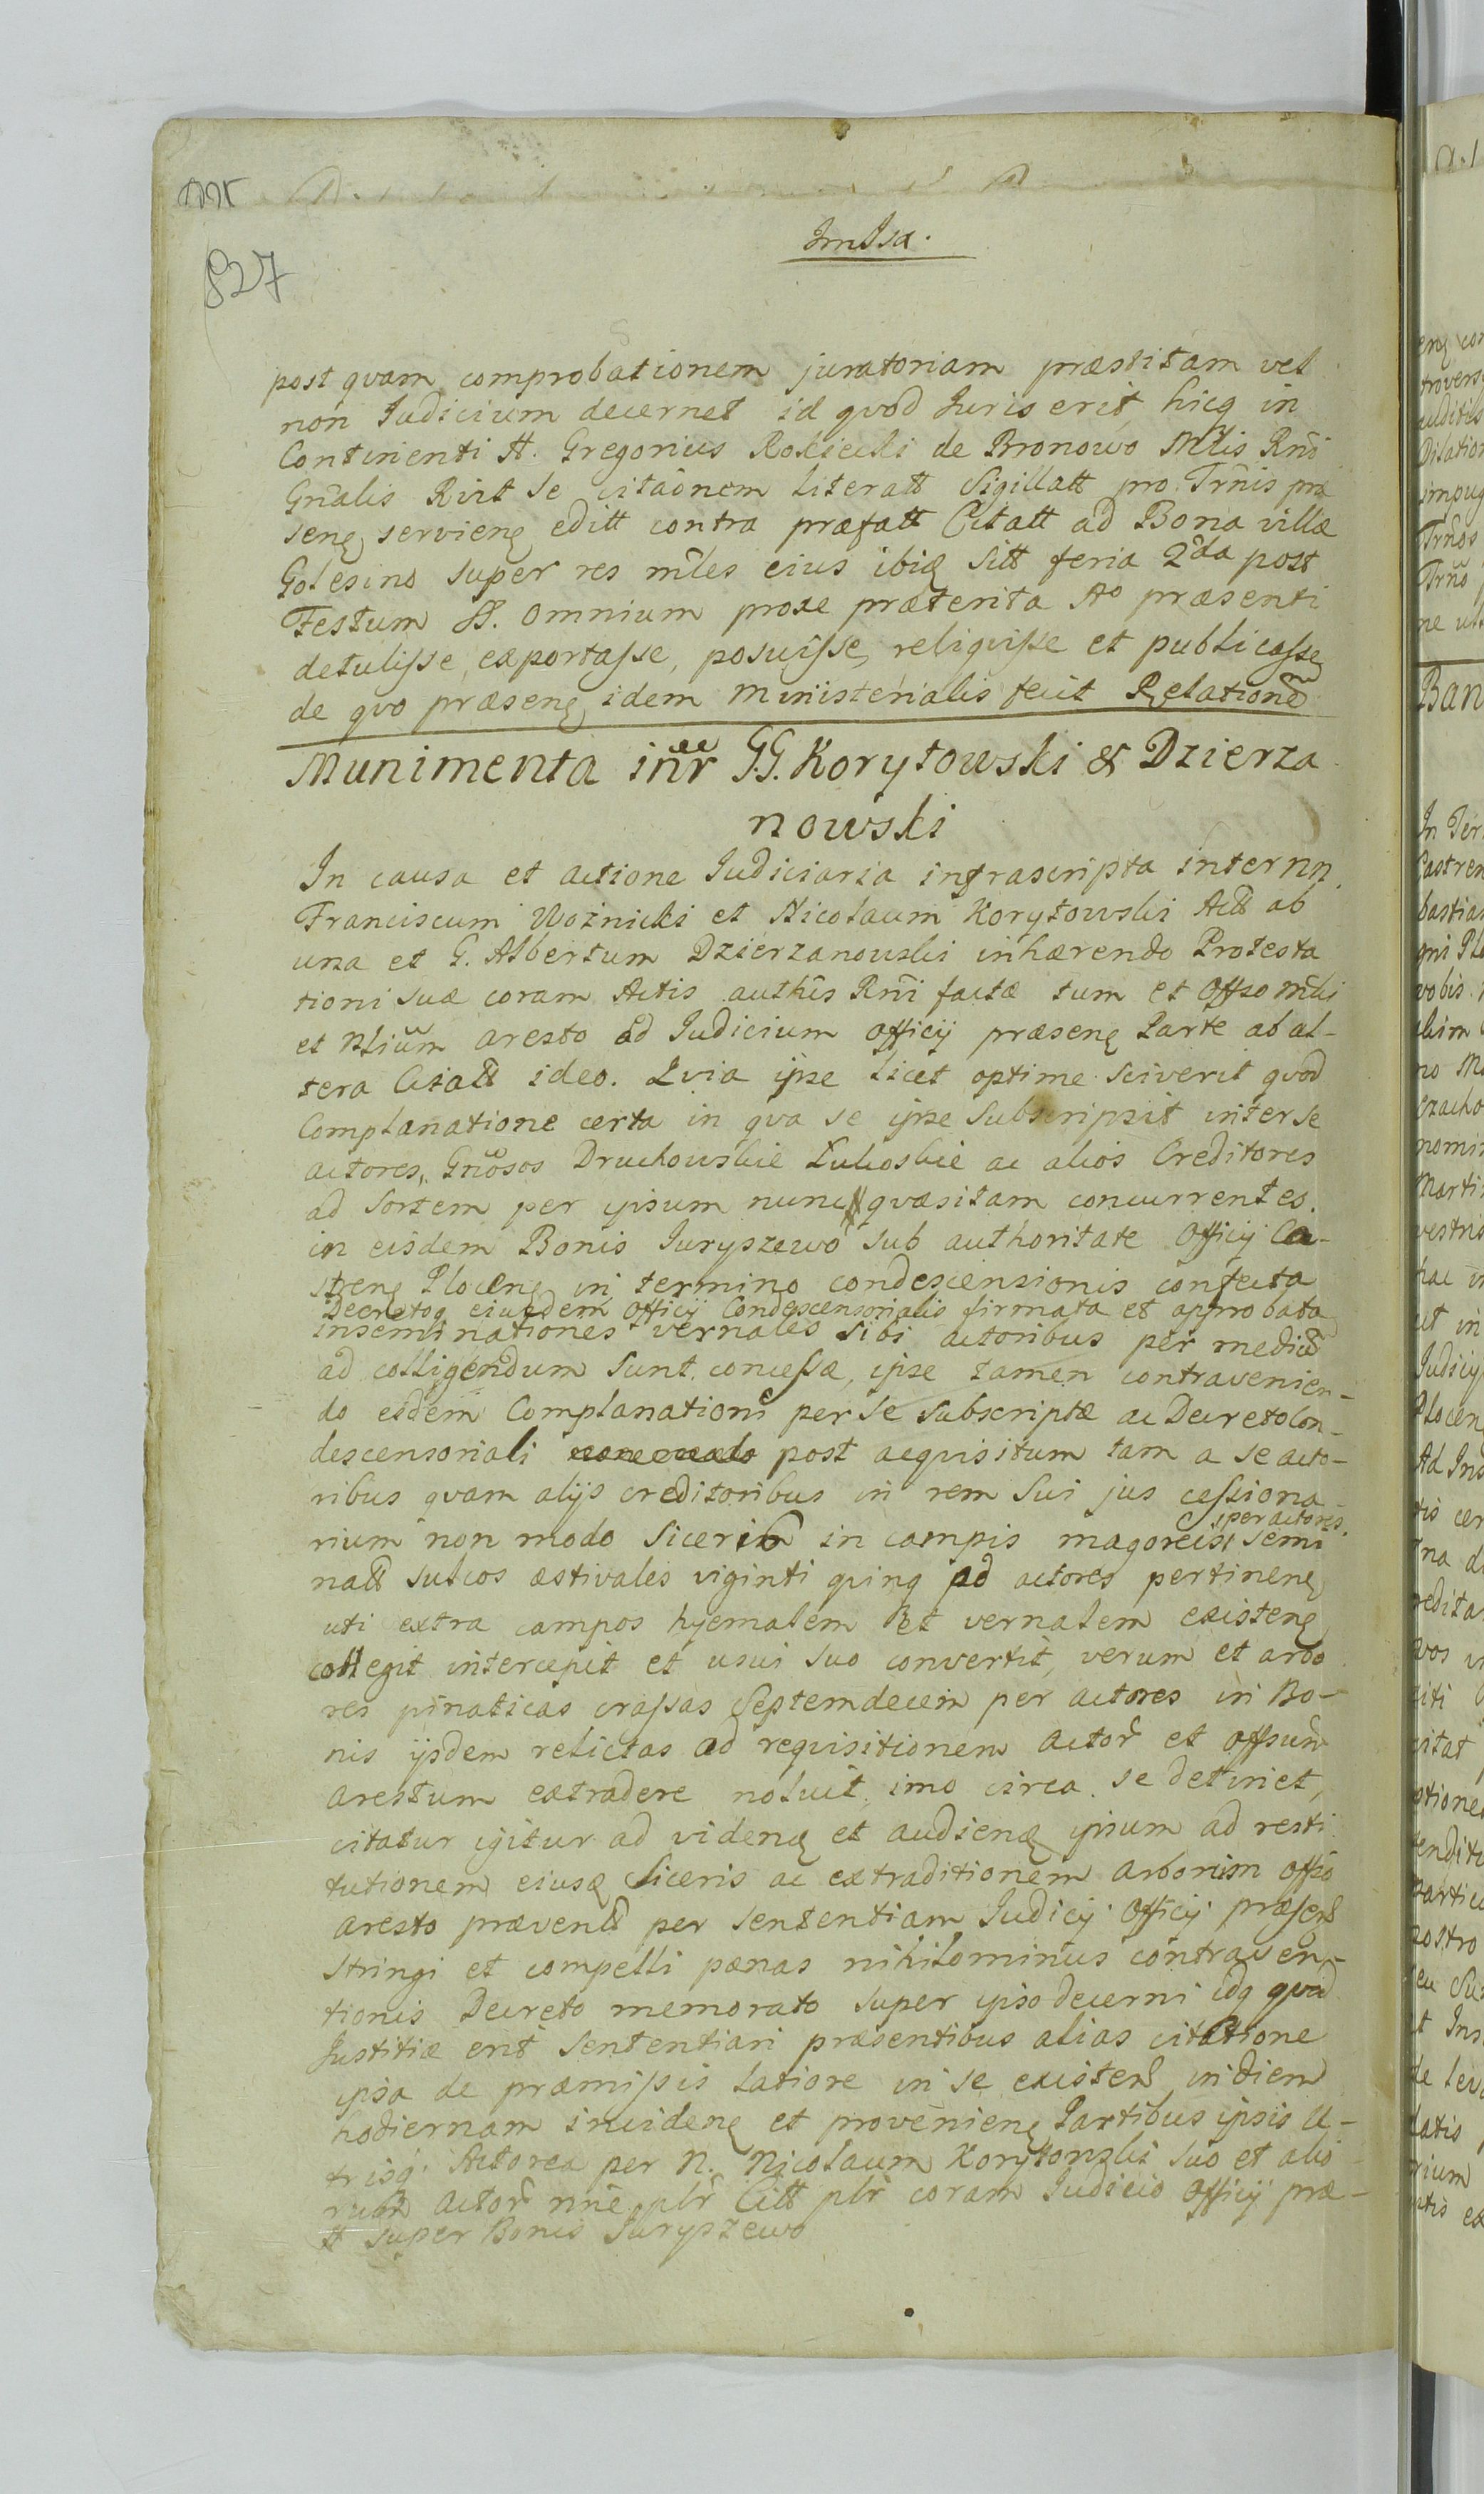 827
post quam comprobationem juratoriam præstitam vel
non Judicium decernet id quod Juris erit, hicq in
Continenti H. Gregorius Rokicki de Bronowo Mlis Rni
Gnalis Rvit se citaonem literatt Sigillatt pro Trnis præ
senq servienq editt contra præfatt Citatt ad Bona villæ
Golesino super res mles eius ibiq sitt feria 2da post
Festum SS. Omnium proxe præterita Ao præsenti
detulisse, exportasse, posuisse, reliquisse et publicasse
de quo præsenq idem Ministerialis fecit Relatione
Munimenta inr GG. Korytowski & Dzierza
nowski
In causa et actione Judiciaria infrascripta inter nn.
Franciscum Woźnicki et Nicolaum Korytowski Actt ab
una et G. Albertum Dzierzanowski inhærendo Protesta
tioni suæ coram Actis authis Rni factæ tum et Offso mli
et Rlium aresto ad Judicium Officij præsenq Parte ab al-
tera Citatt ideo. Quia ipse licet optime sciverit quod
Complanatione certa in qva se ipse subscripsit inter se
actores, Gnosos Druchowskie Łukoskie ac alios Creditores
ad sortem per ipsum nunc quæsitam concurrentes.
in eisdem Bonis Juryszewo sub authoritate Officij Ca-
strenq Plocenq in termino condescensionis confecta
Decretoq eiusdem Officij Condescensorialis firmata et approbata
inseminationes vernales sibi actoribus per mediu
ad colligendum sunt concessæ, ipse tamen contravenien-
do eidem Complanationi per se subscriptæ ac Decreto Con-
descensoriali post acquisitum tam a se acto-
ribus quam alijs creditoribus in rem sui jus cessiona-
rium non modo siceris in campis magoreist semi
per actores.
natt sulcos æstivales viginti quinq ad actores pertinenq
uti extra campos hyemalem et vernalem existenq
collegit intercepit et usui suo convertit, verum et arbo
res pinaticas crassas septemdecim per actores in Bo-
nis ijsdem relictas ad requisitionem actor et offsum
arestum extradere noluit imo circa se detinet,
citatur igitur ad videnq et audienq ipsum ad resti
tutionem eiusq Siceris ac extraditionem arborum offso
aresto prævent per sententiam Judicij Officij præsent
stringi et compelli pænas nihilominus contraven-
tionis Decreto memorato super ipso decerni idq quod
Justitiæ erit sententiari præsentibus alias citatione
ipsa de præmissis latiore in se existent in diem
hodiernam incidenq et provenienq Partibus ipsis u-
trisq. Actorea per N. Nicolaum Korytowski suo et alio
rum actor nne plr Citt plr coram Judicio Officij præ-
tt super Bonis Juryszewo